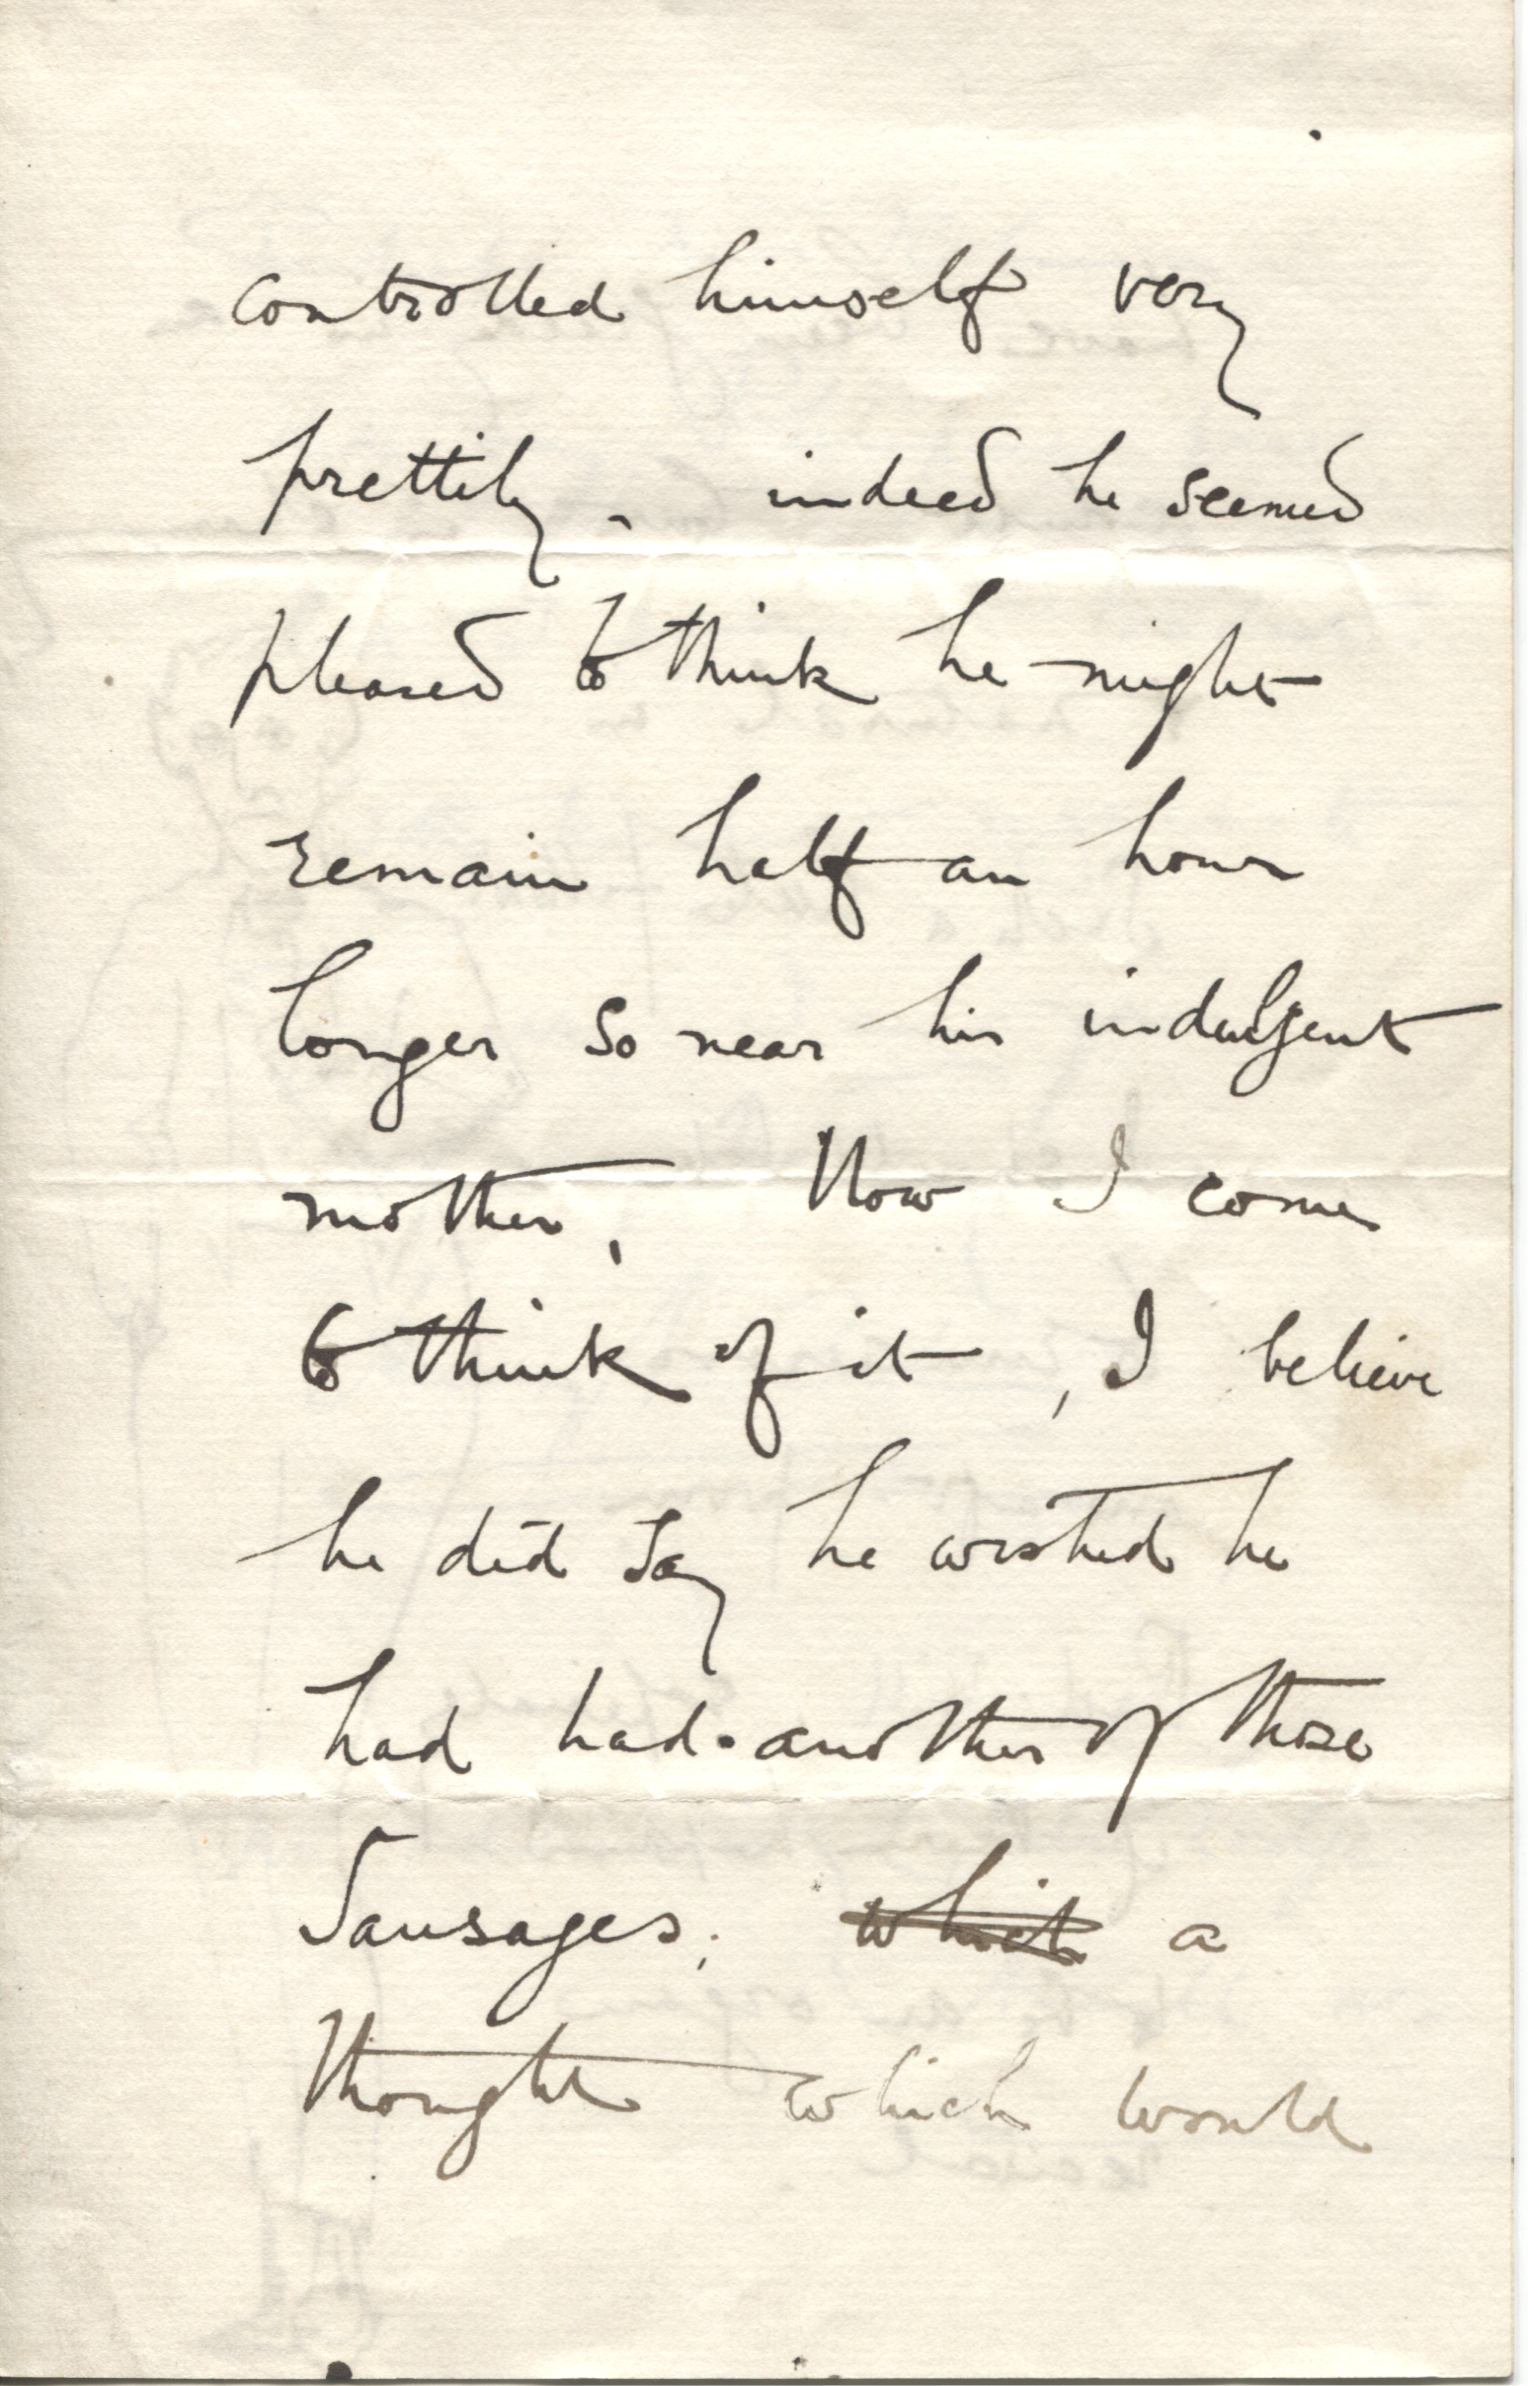 controlled himself very
prettily. indeed he seemed
pleased to think he might
remain half an hour
longer so near his indulgent
mother, Now I come
to think of it, I believe
he did say he wished he
had had another of those
Sausages; which a
thought which would